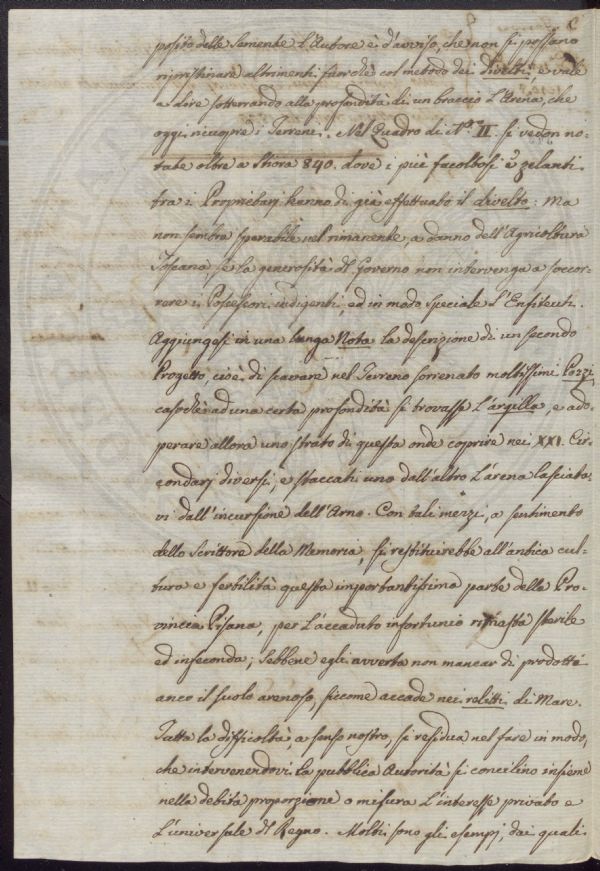 posito delle Semente L'Autore è d'avviso, che non si possano
ripristinare altrimenti fuorchè col metodo dei divelti, e vale
a dire sotterrando alla profondità di un braccio L'Arena, che
oggi ricuopre i Terreni. Nel Quadro di N.ro II. si vedon no-
tate oltre a Stiora 840. dove i più facoltosi e zelanti
tra i Proprietarj hanno di già effettuato il divelto: Ma
non sembra sperabile nel rimanente, a danno dell'Agricoltura
Toscana se la generosità del Governo non intervenga a soccor-
rere i Possessori indigenti, ed in modo speciale L'Enfiteuti.
Aggiungesi in una lunga Nota la descrizione di un secondo
Progetto, cioè di scavare nel Terreno sorrenato moltissimi Pozzi
casochè ad una certa profondità si trovasse L'argilla, e ado-
perare allora uno strato di questa onde coprire nei XXI. Cir-
condarj diversi, e staccati uno dall'altro L'arena lasciata-
vi dall'incursione dell'Arno. Con tali mezzi, a sentimento
dello Scrittore della Memoria, si restituirebbe all'antica cul-
tura e fertilità questa importantissima parte della Pro-
vincia Pisana, per L'accaduto infortunio rimasta sterile
ed infeconda; Sebbene egli avverta non mancar di prodotti
anco il suolo arenoso, siccome accade nei relitti di Mare.
Tutta la difficoltà, a senso nostro, si residua nel fare in modo,
che intervenendovi la pubblica Autorità si concilino insieme
nella debita proporzione o misura L'interesse privato e
L'universale del Regno. Molti sono gli esempj, dai quali